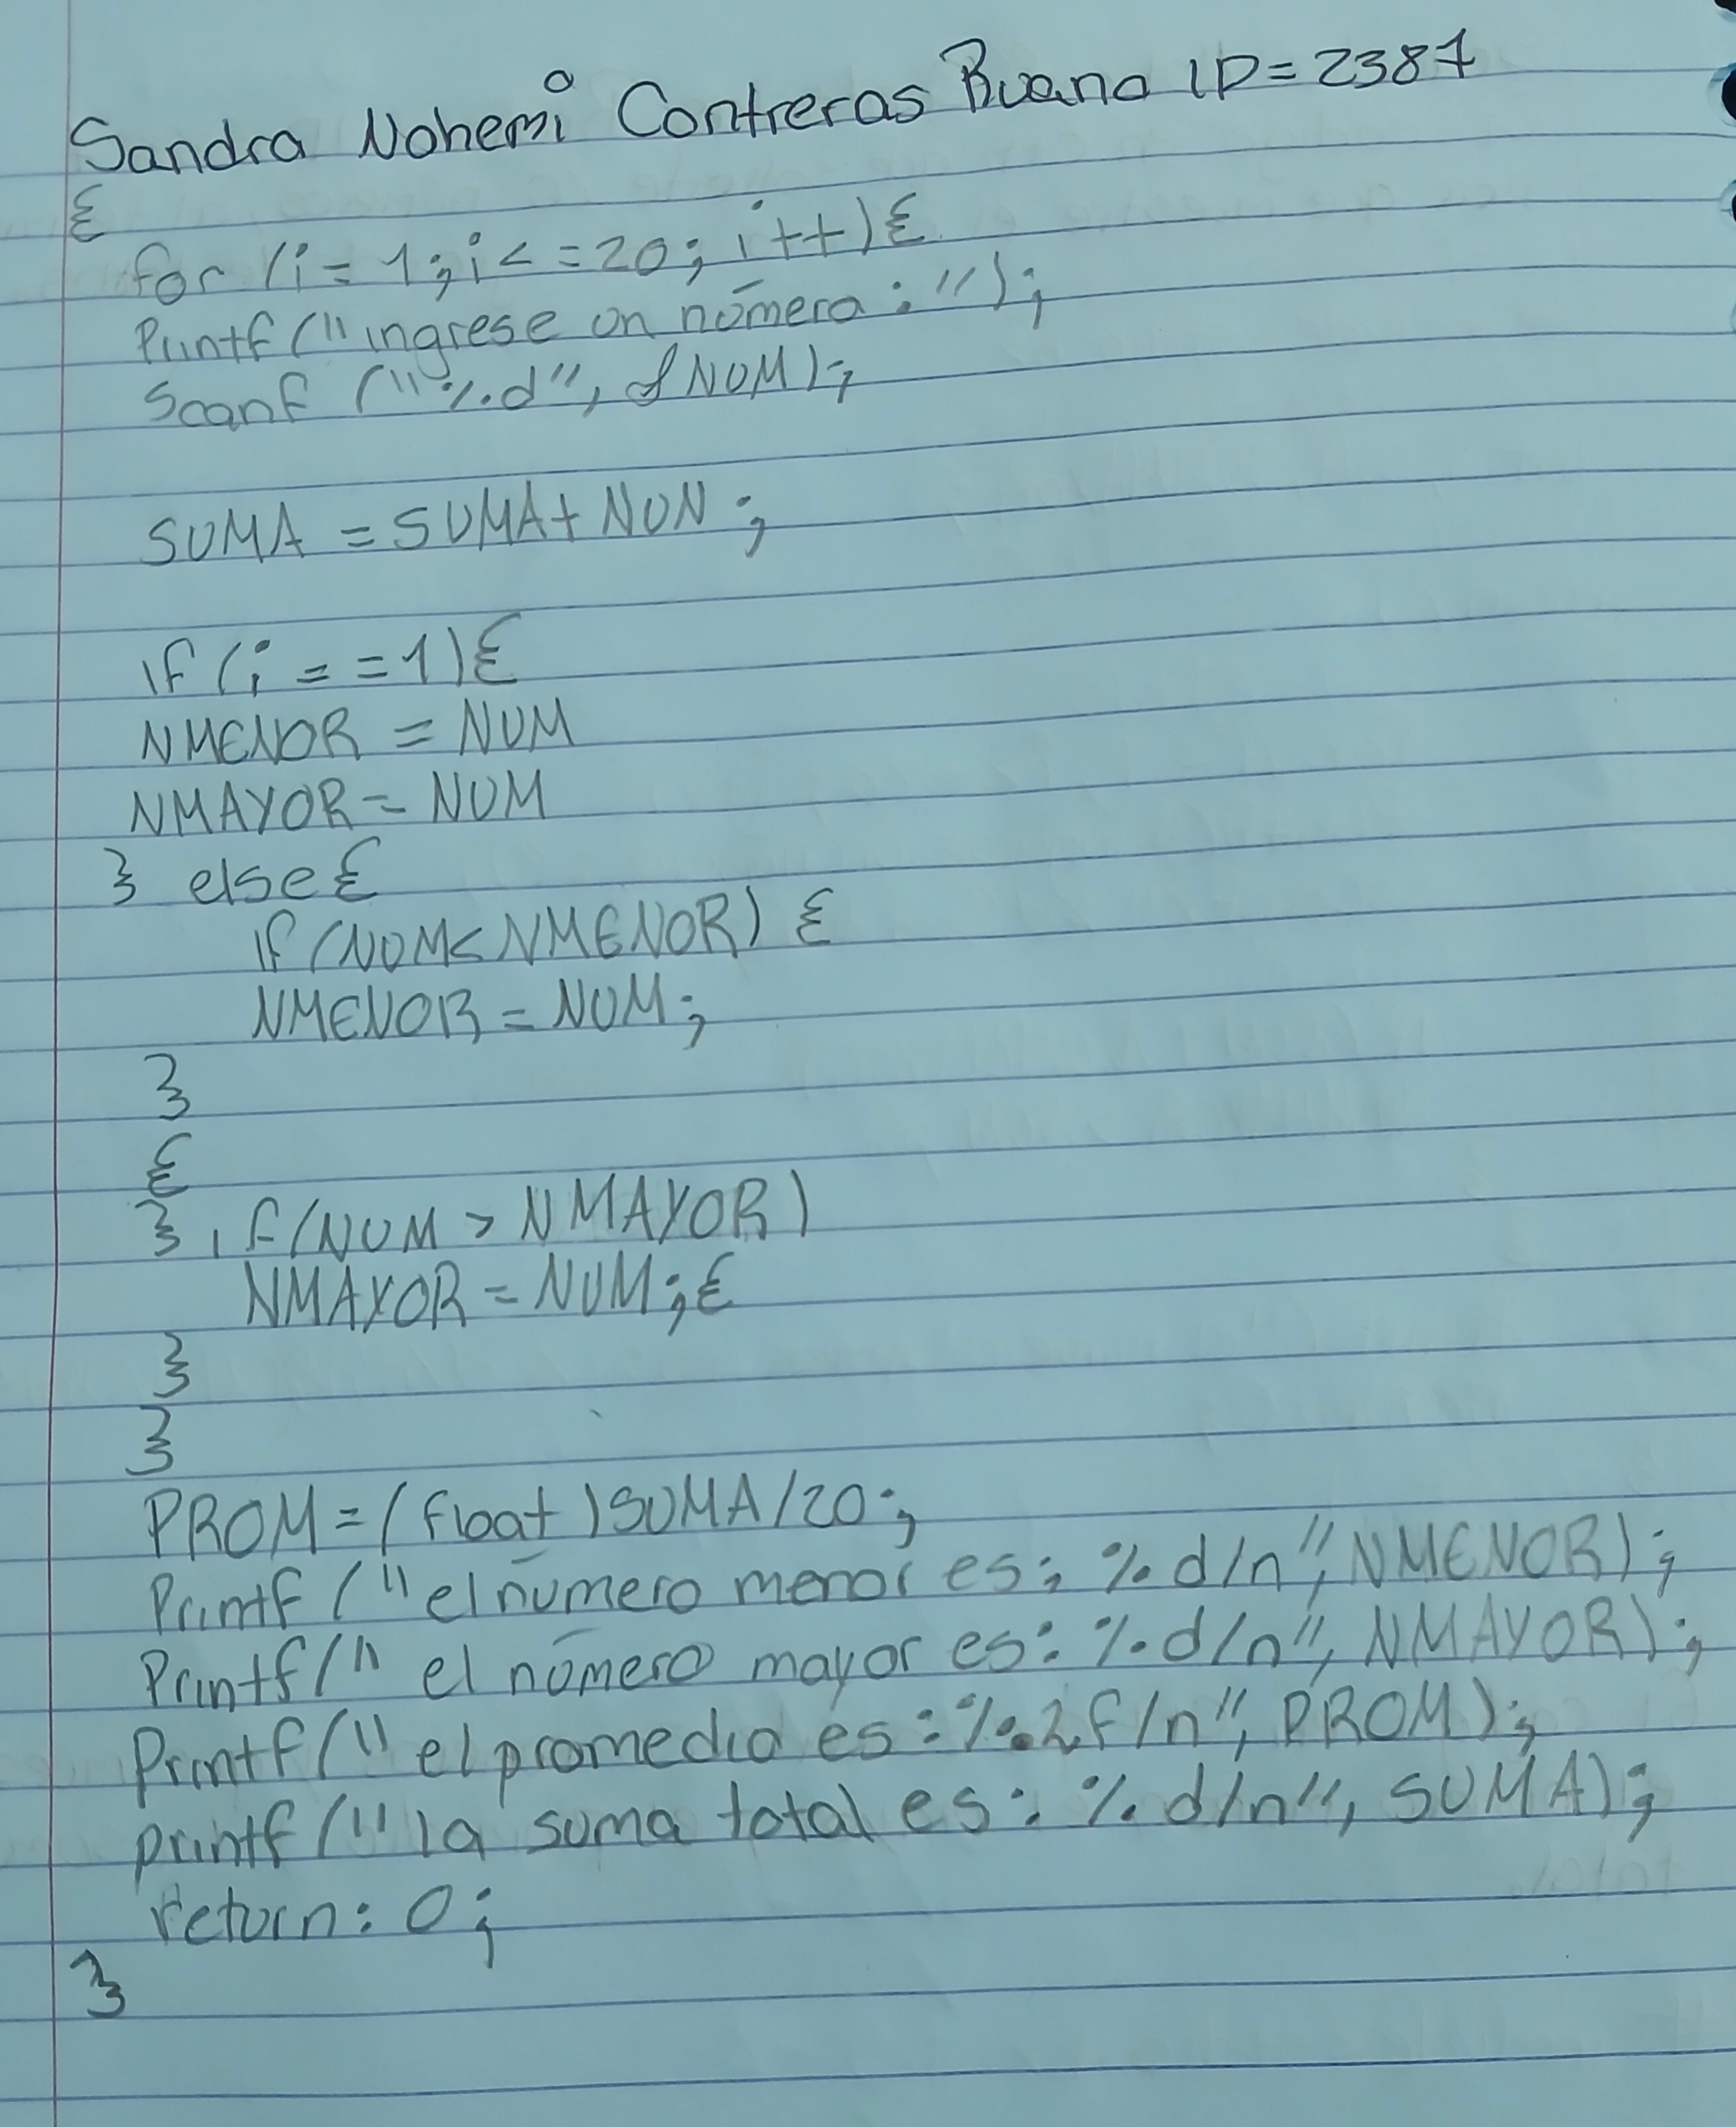 Sandra Nohemi Contreras Bueno ID=2387
{
for (i=1;i<=20; i++){
Printf("ingrese un número:");
Scanf ("%d", &NUM);
SUMA = SUMA+ NUN;
if (i==1){
NMENOR = NUM
NMAYOR = NUM
} else{
if (NUM<NMENOR) {
NMENOR = NUM;
}
{
} if(NUM > NMAYOR)
NMAYOR = NUM;{
}
}
PROM=(float)SUMA/20;
Printf ("el número menor es: %d/n", NMENOR);
Printf(" el número mayor es: %d/n", NMAYOR);
Printf(" el promedio es:%.2f/n", PROM);
printf(" la suma total es: %d/n", SUMA);
return: 0;
}